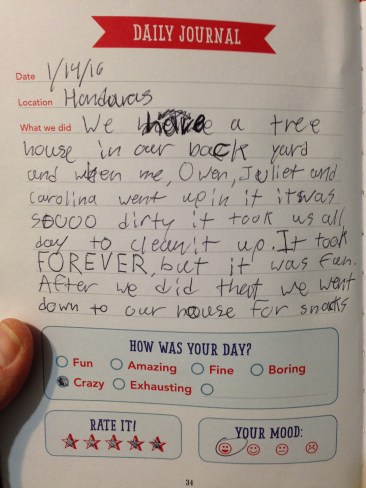 DAILY JOURNAL
Date 1/14/16
Location Honduras
What we did We have a tree
house in our back yard
and when me, Owen, Juliet and
Carolina went up in it it was
soooo dirty it took us all
day to clean it up. It took
FOREVER, but it was fun.
After we did that we went
down to our house for snacks
HOW WAS YOUR DAY?
Fun Amazing Fine Boring
Crazy Exhausting
RATE IT!
YOUR MOOD:
34